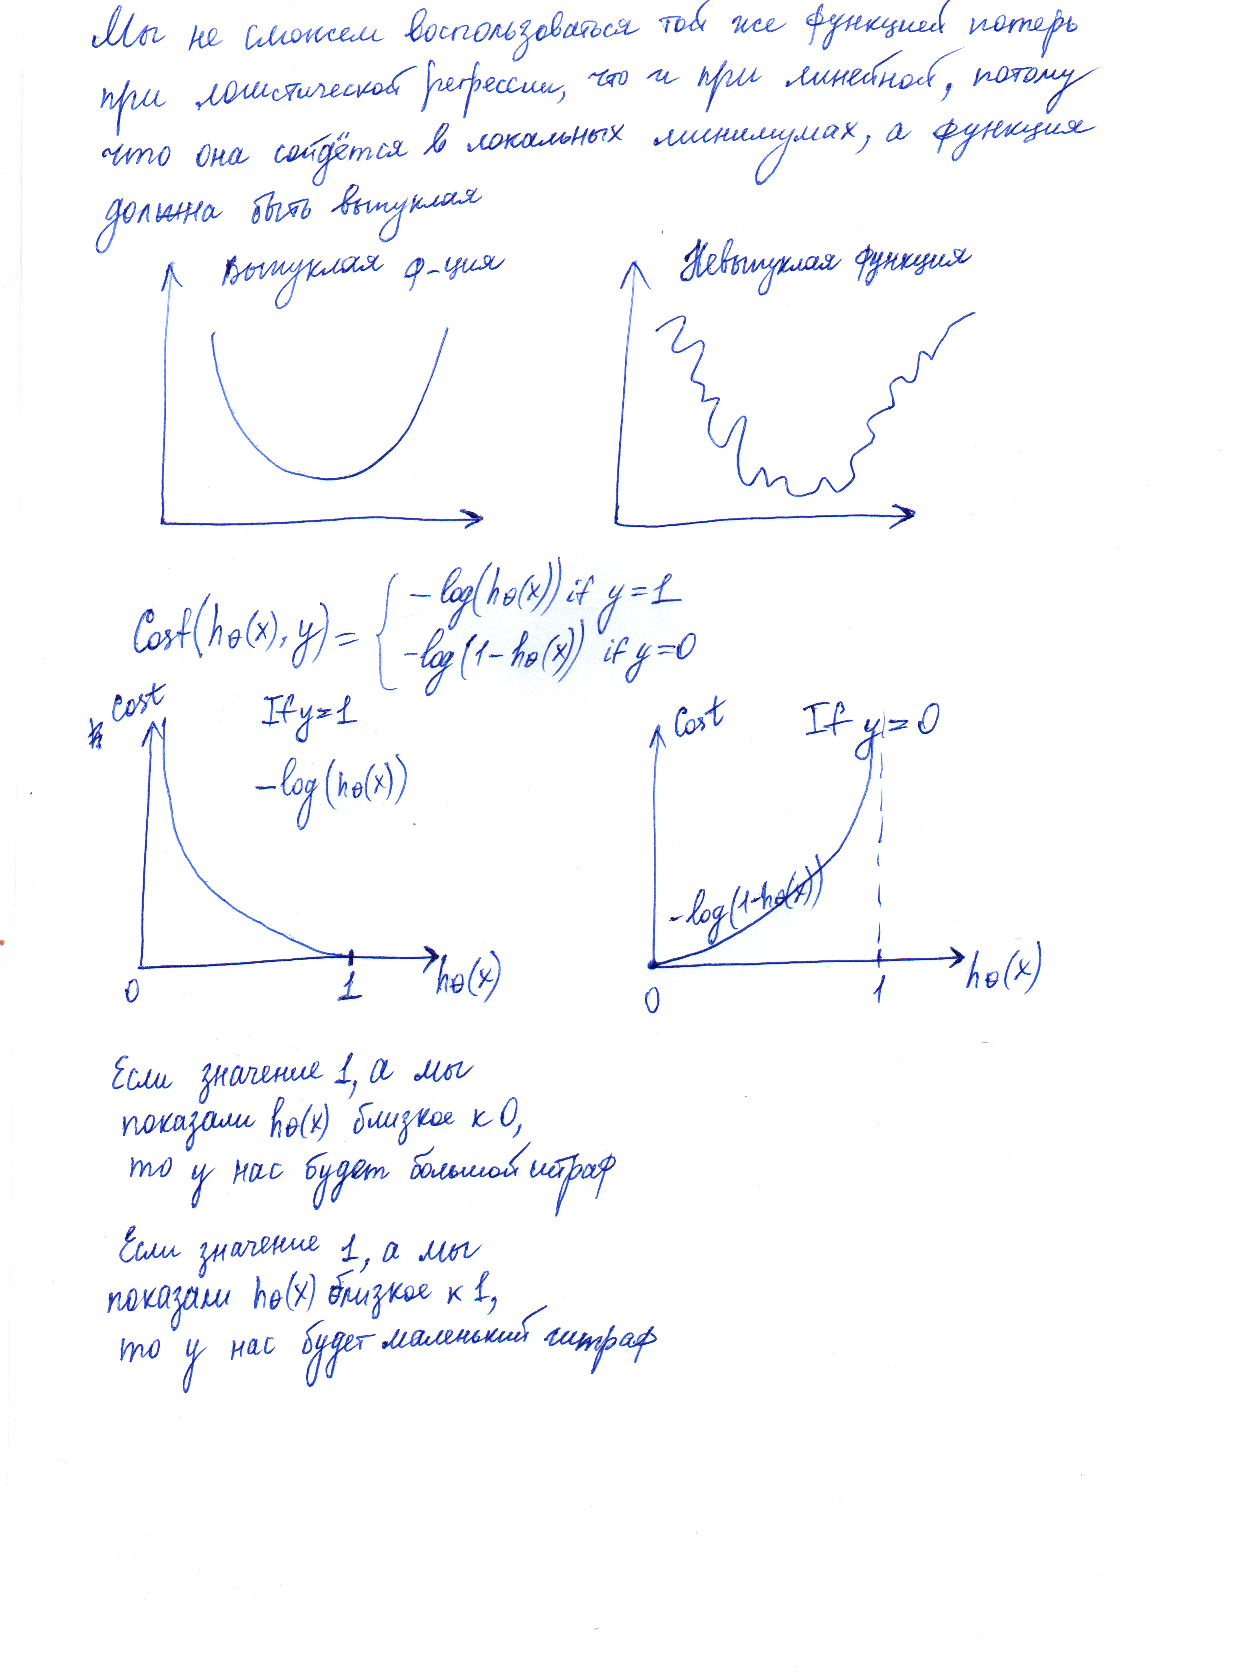 Мы не сможем воспользоваться той же функцией потерь
при логистической регрессии, что и при линейной, потому
что она сойдётся в локальных минимумах, а функция
должна быть выпуклая
Выпуклая ф-ция
Невыпуклая функция
Cost(hθ(x), y) = { -log(hθ(x)) if y=1
-log(1-hθ(x)) if y=0
cost
If y=1
-log(hθ(x))
0
1
hθ(x)
Cost
If y=0
-log(1-hθ(x))
0
1
hθ(x)
Если значение 1, а мы
показали hθ(x) близкое к 0,
то у нас будет большой штраф
Если значение 1, а мы
показали hθ(x) близкое к 1,
то у нас будет маленький штраф